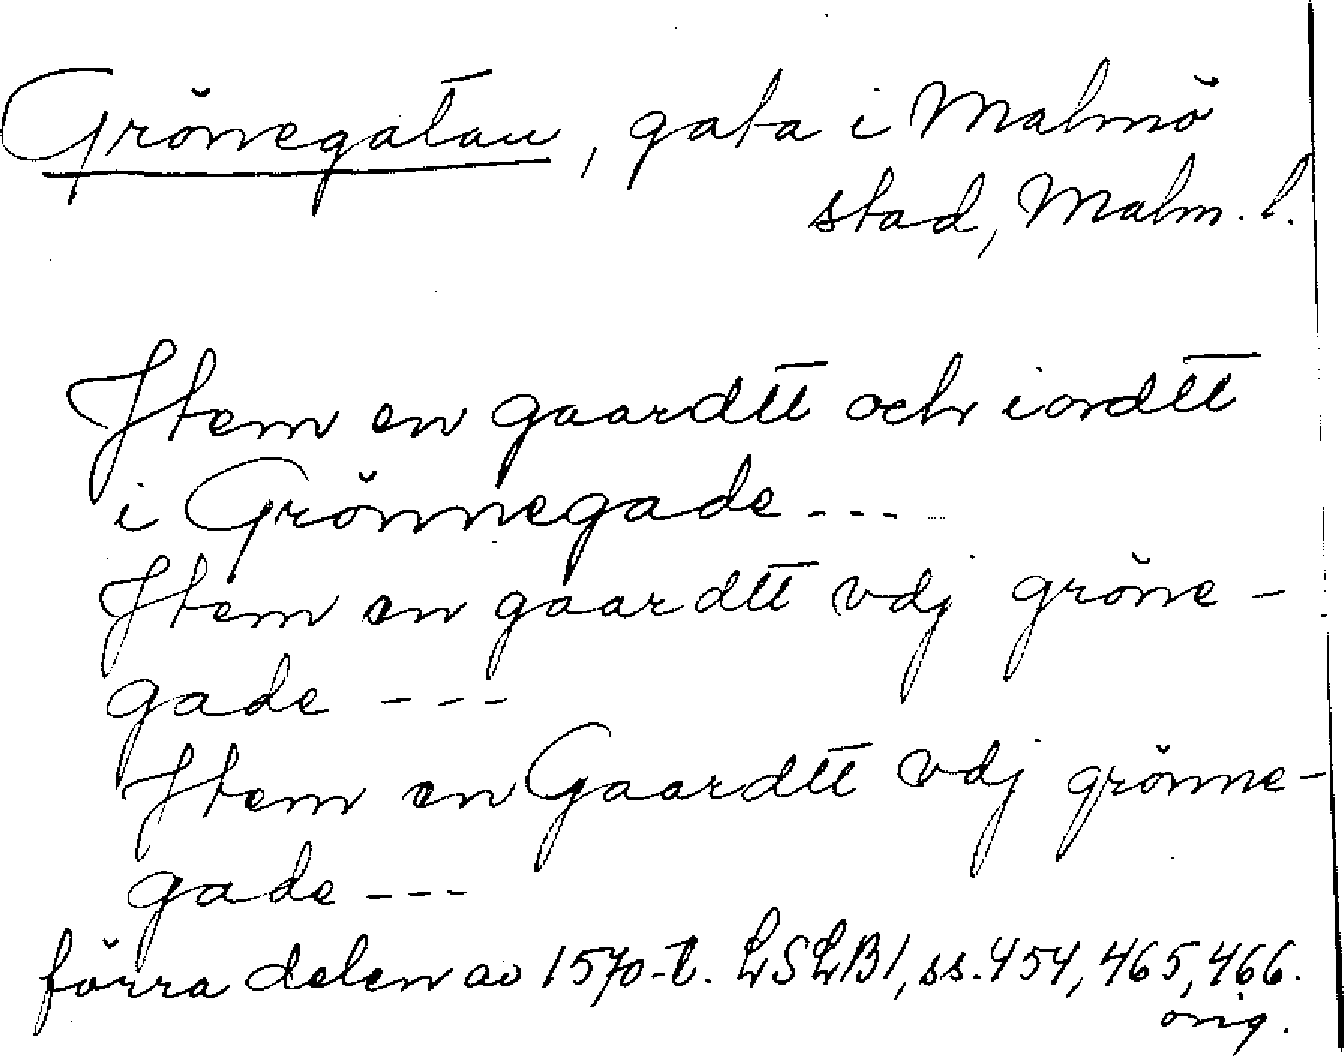 Grönegatan, gata i Malmö
stad, Malm. l.
Item en gaardtt och iordtt
i Grönnegade - - -
Item en gaardtt vdj gröne-
gade - - -
Item en Gaardtt vdj grönne-
gade - - -
förra delen av 1570-t. LSLB1, ss. 454, 465, 466.
orig.